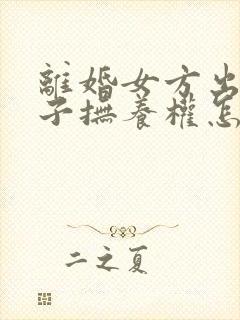 離婚女方出
子撫養權怎
二之夏